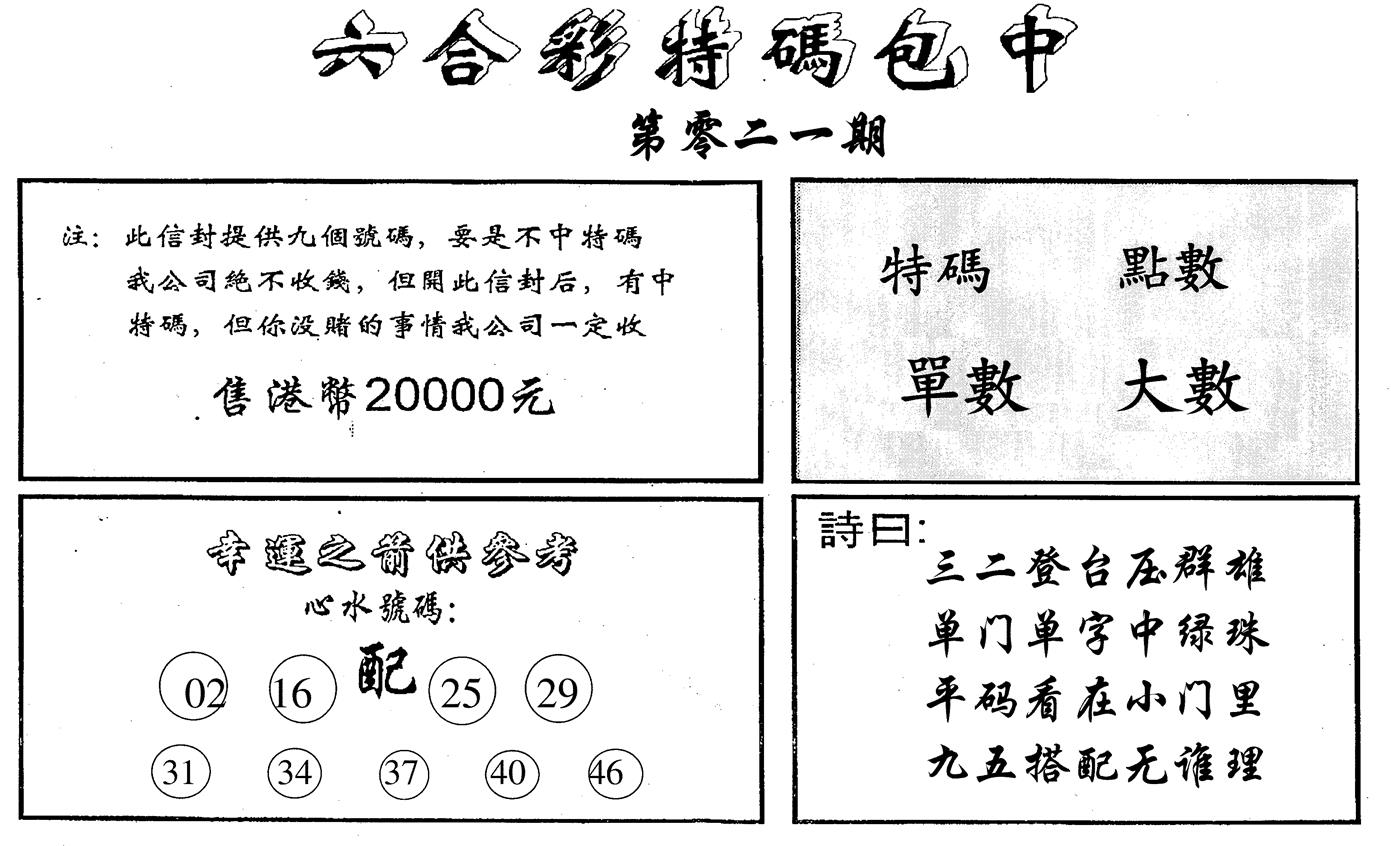 六合彩特碼包中
第零二一期
注：此信封提供九個號碼，要是不中特碼
我公司絕不收錢，但開此信封后，有中
特碼，但你没賭的事情我公司一定收
售港幣20000元
特碼 點數
單數 大數
幸運之箭供參考
心水號碼：
02 16 配 25 29
31 34 37 40 46
詩曰：
三二登台压群雄
单门单字中绿珠
平码看在小门里
九五搭配无谁理